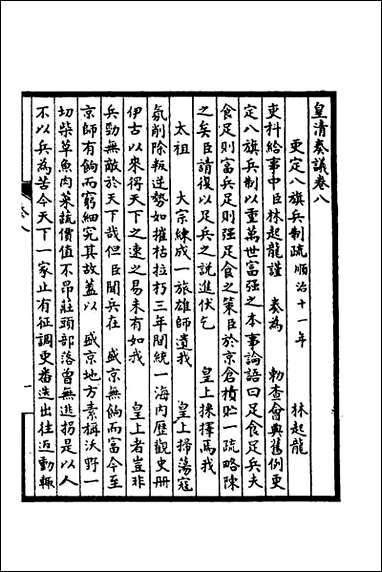 皇清奏議卷八
更定八旗兵制疏 順治十一年 林起龍
吏科給事中臣林起龍謹 奏為 勅查會典舊例更
定八旗兵制以重萬世富强之本事論語曰足食足兵夫
食足則富兵足則强足食之策臣於京倉積貯一疏略陳
之矣臣請復以足兵之說進伏乞 皇上採擇焉我
太祖 太宗練成一旅雄師遺我 皇上掃蕩寇
氛削除叛逆勢如摧枯拉朽三年間統一海内歷觀史册
伊古以來得天下之速之易未有如我 皇上者豈非
兵勁無敵於天下哉但臣聞兵在 盛京無餉而富今至
京師有餉而窮細究其故蓋以 盛京地方素稱沃野一
切柴草魚肉菜蔬價值不昂莊頭部落曽無逃拐是以人
不以兵為苦今天下一家止有征調更番迭出往近動輒
一